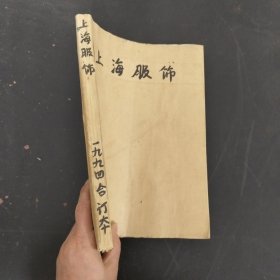 上海服饰
上海服饰
一九九四合订本